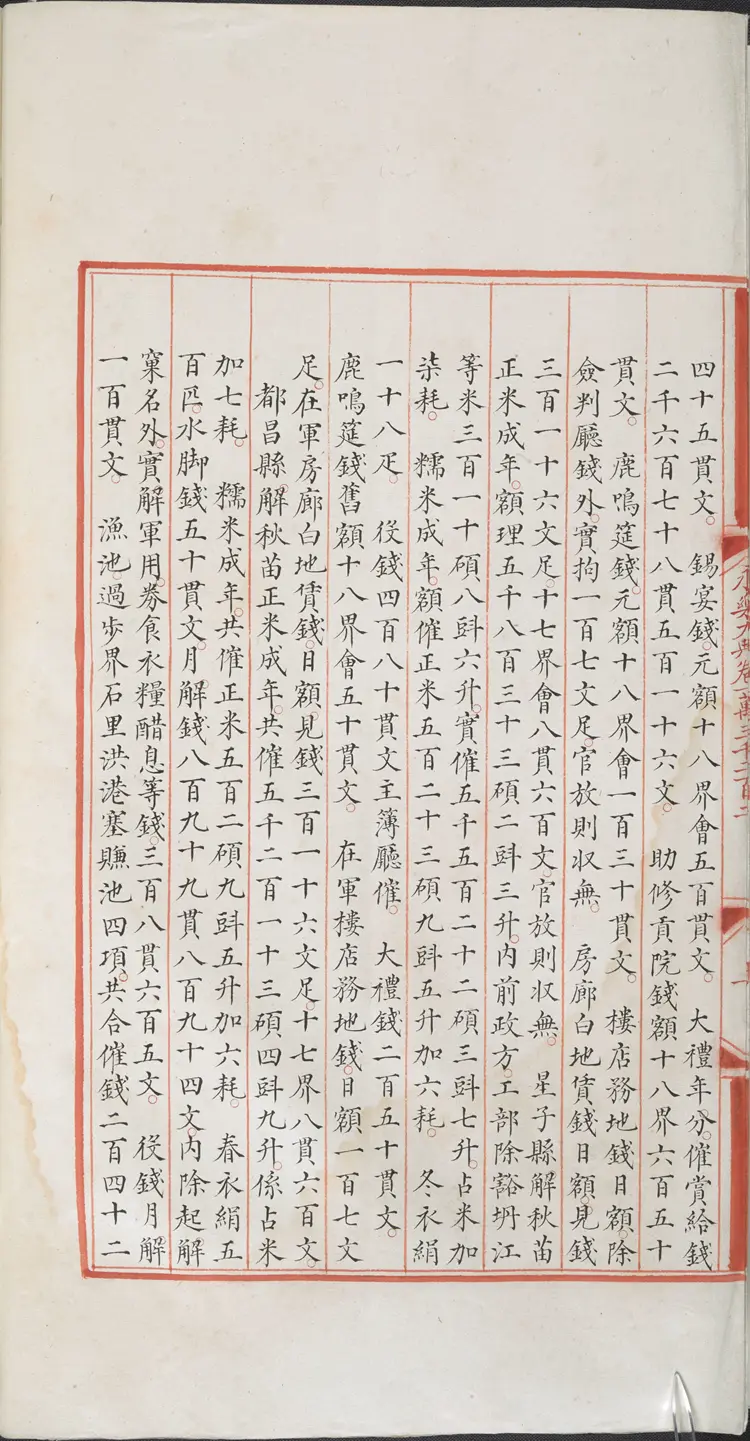 四十五貫文。　錫宴錢。元額十八界會五百貫文。　大禮年分。催賞給錢
二千六百七十八貫五百一十六文。　助修貢院錢額十八界六百五十
貫文。　鹿鳴筵錢。元額十八界會一百三十貫文。　樓店務地錢日額。除
僉判廳錢外。實拘一百七文足。官放則収無。　房廊白地賃錢日額。見錢
三百一十六文足。十七界會八貫六百文。官放則収無。　星子縣解秋苗
正米成年。額理五千八百三十三碩二㪷三升。内前政方。工部除豁坍江
等米三百一十碩八㪷六升。實催五千五百二十二碩三㪷七升。占米加
柒耗。　糯米成年。額催正米五百二十三碩九㪷五升加六耗。　冬衣絹
一十八疋。　役錢四百八十貫文主簿廳催。　大禮錢二百五十貫文。
鹿鳴筵錢舊額十八界會五十貫文。　在軍樓店務地錢。日額一百七文
足。在軍房廊白地賃錢。日額。見錢三百一十六文足。十七界八貫六百文。
都昌縣。解秋苗正米成年。共催五千二百一十三碩四㪷九升。係占米
加七耗。　糯米成年。共催正米五百二碩九㪷五升加六耗。　春衣絹五
百匹。水脚錢五十貫文。月解錢八百九十九貫八百九十四文。内除起解
窠名外。實解軍用。券食衣糧醋息等錢。三百八貫六百五文。　役錢月解
一百貫文。　漁池。過步界石里洪港塞賺池四項。共合催錢二百四十二